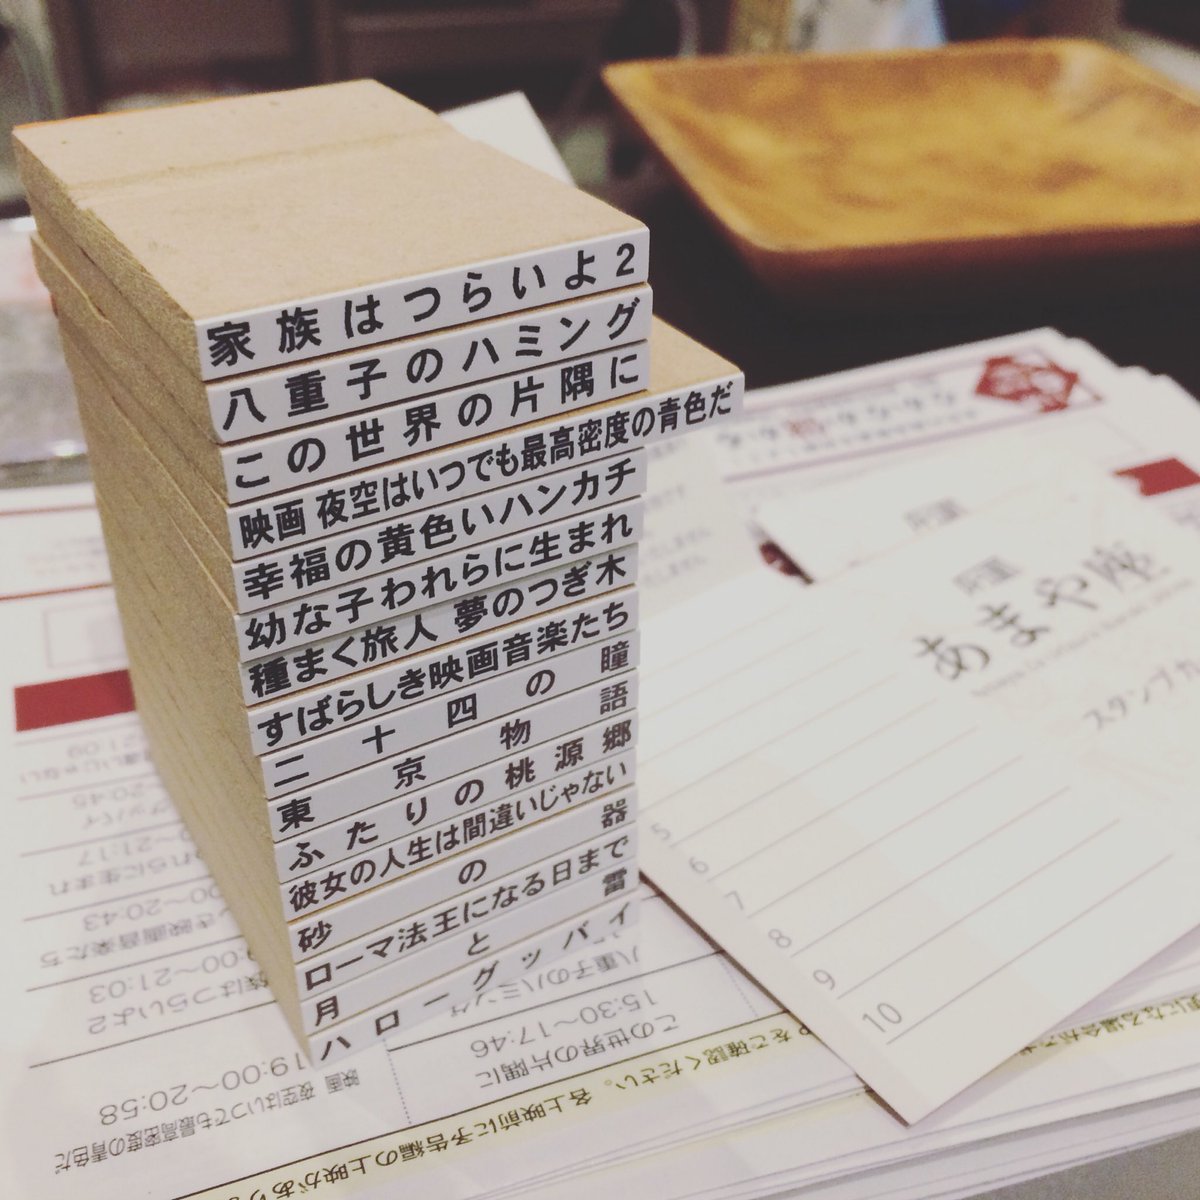 家族はつらいよ2
八重子のハミング
この世界の片隅に
映画 夜空はいつでも最高密度の青色だ
幸福の黄色いハンカチ
幼な子われらに生まれ
種まく旅人 夢のつぎ木
すばらしき映画音楽たち
二十四の瞳
東京物語
ふたりの桃源郷
彼女の人生は間違いじゃない
砂の器
ローマ法王になる日まで
月と雷
ハローグッバイ
あまや座
スタンプカ
5
6
7
8
9
10
21:09
20:45
~21:17
~20:43
~21:03
19:00~20:58
映画 夜空はいつでも最高密度の青色だ
八重子のハミング
15:30~17:46
この世界の片隅に
をご確認ください。
各上映前に予告編の上映があり